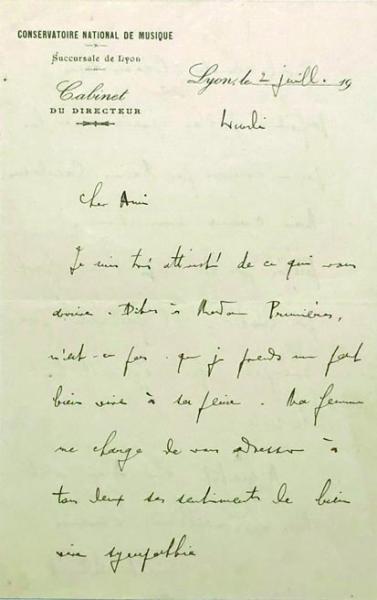 CONSERVATOIRE NATIONAL DE MUSIQUE
Succursale de Lyon
Cabinet
DU DIRECTEUR
Lyon, le 2 juill. 19
Lundi
Cher Ami
Je suis très attristé de ce qui vous
arrive. Dites à Madame Prunières,
n'est-ce pas que je prends une part
bien vive à sa peine. Ma femme
me charge de vous adresser à
tous deux ses sentiments de bien
vive sympathie